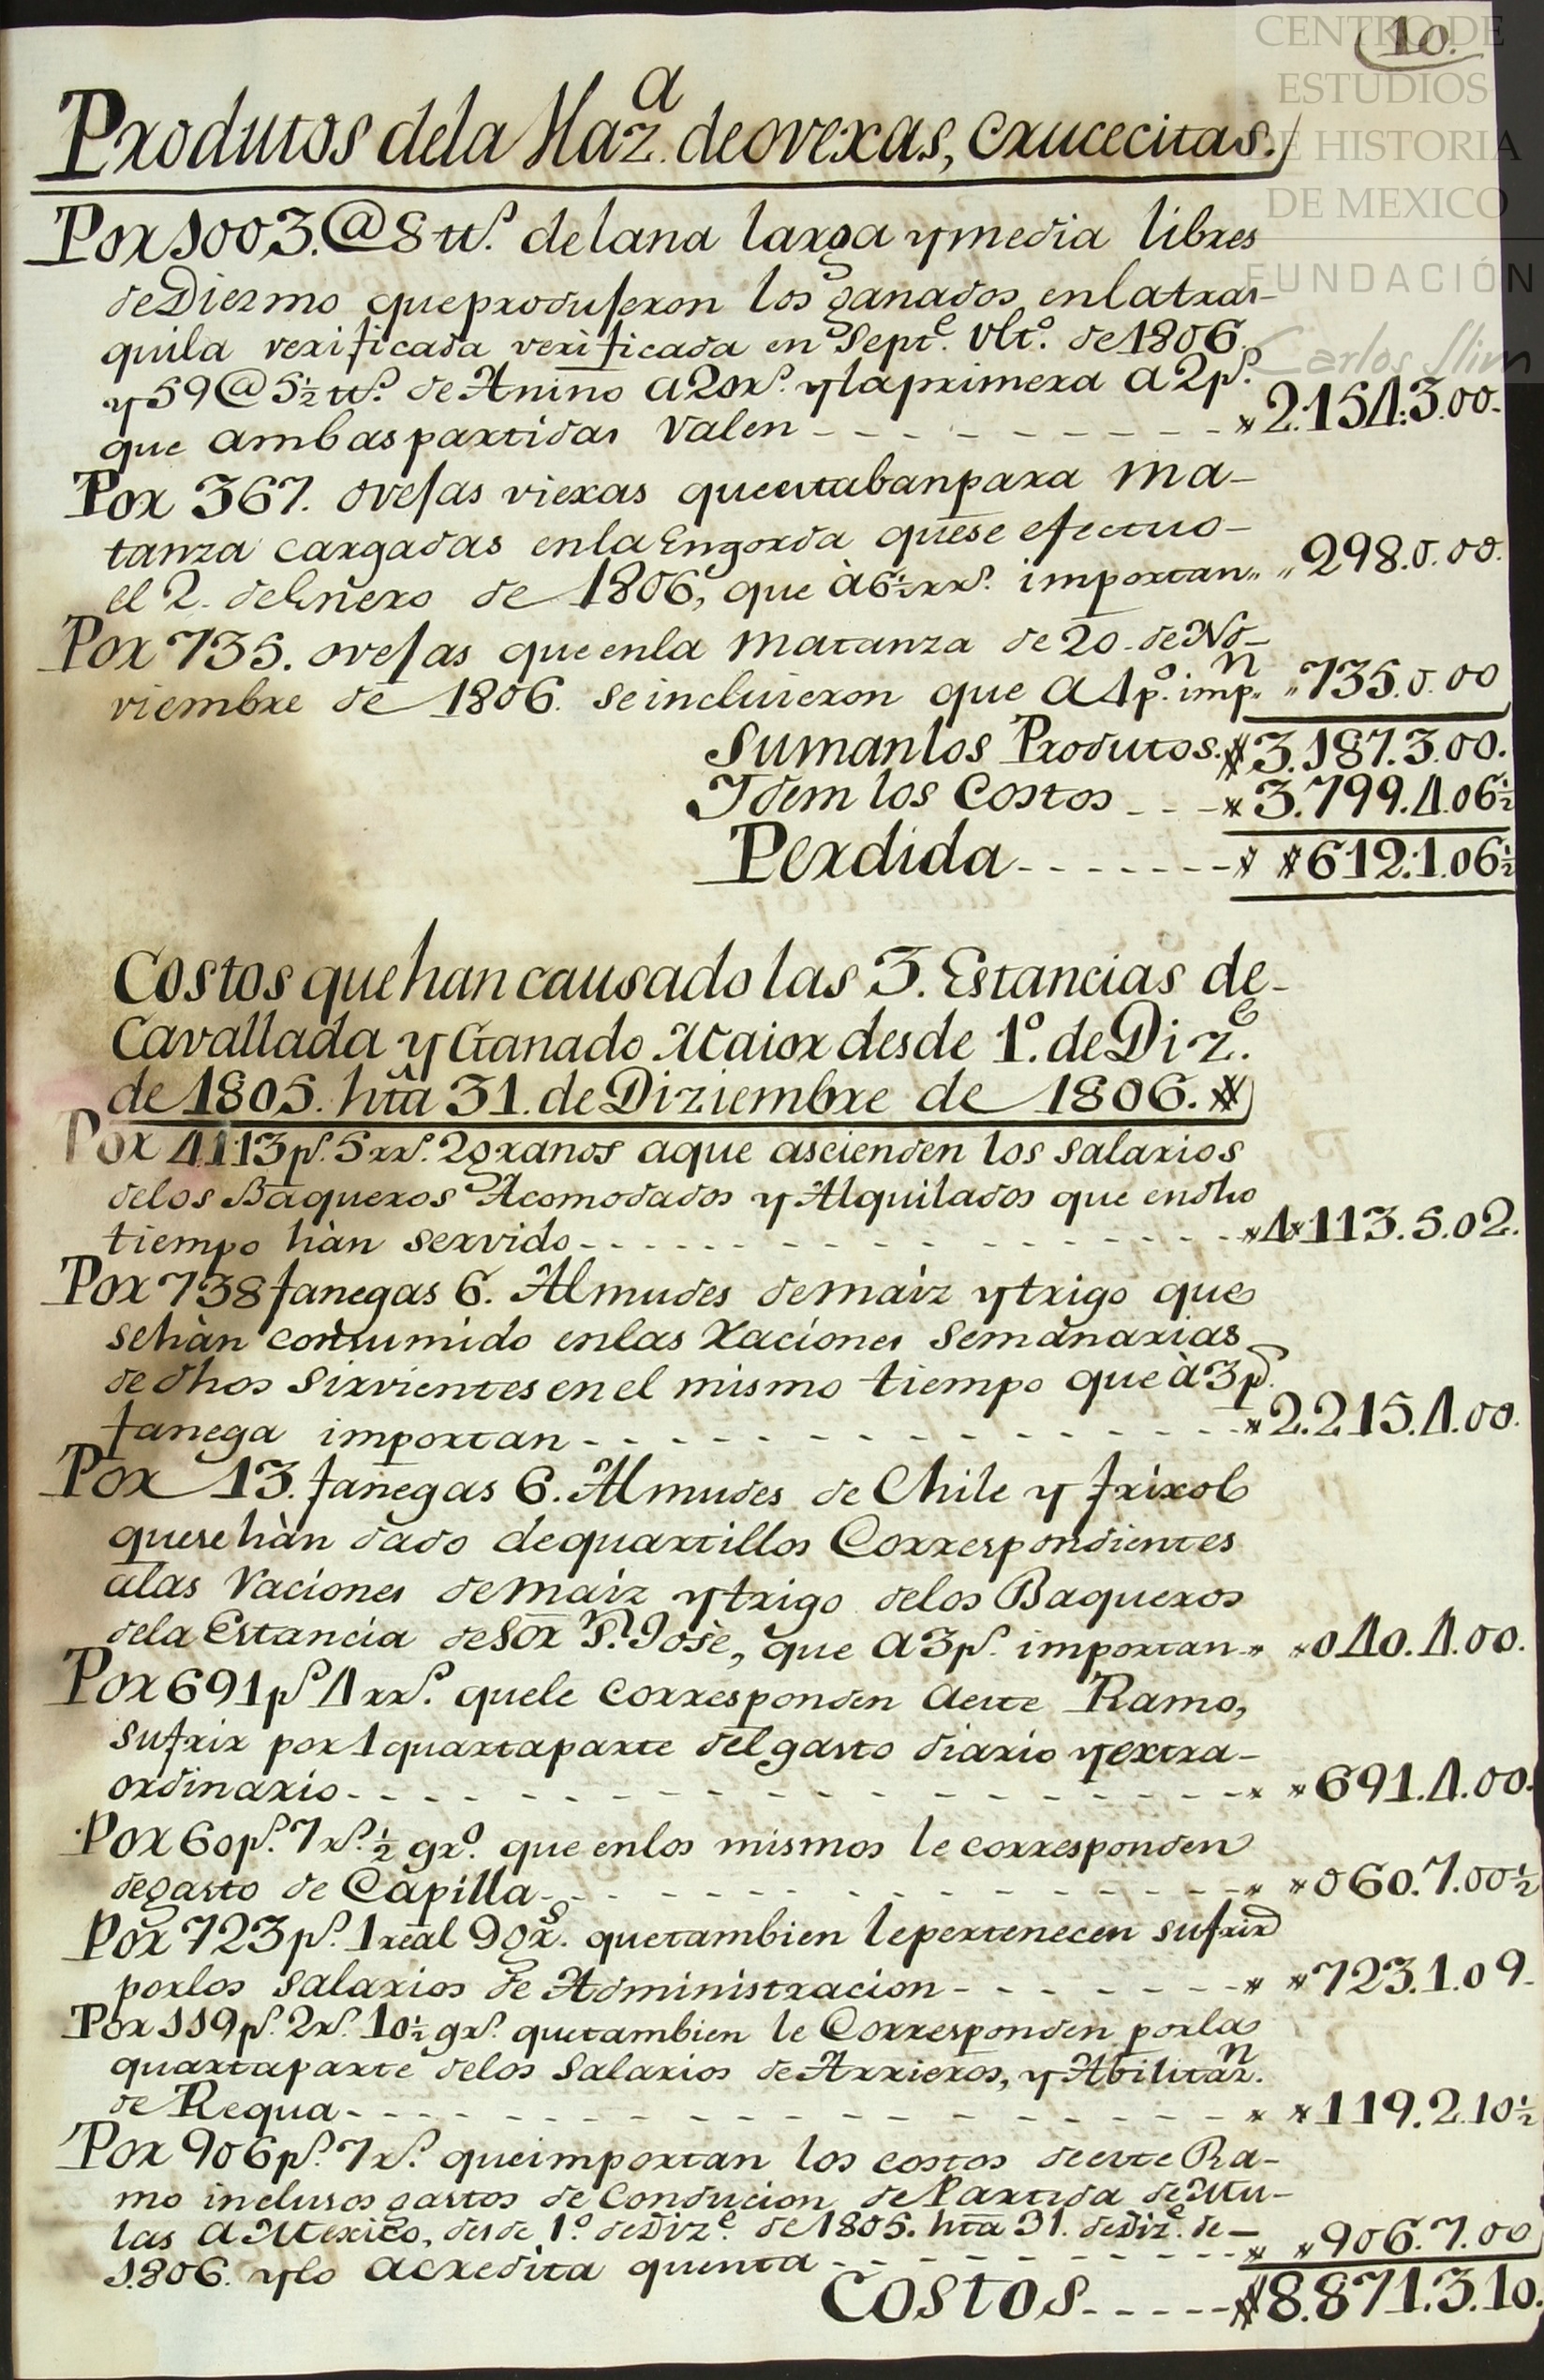 10.
CENTRO DE
ESTUDIOS
DE HISTORIA
DE MEXICO
FUNDACIÓN
Carlos Slim
Produtos dela Haz.a de ovexas, crucecitas.
Por 1003.@ 8 tt.s de lana larga y media libres
de Diezmo que produjeron los ganados en la tras-
quila verificada verificada en Sept.e Vlt.o de 1806
y 59 @ 5½ tt.s de Anino a 20 r.s y la primera a 2 p.s
que ambas partidas valen - - - - - - - - - - 2.154.3.00.
Por 367. ovejas viexas que estaban para ma-
tanza cargadas en la Engorda que se efectuo-
el 2. de Enero de 1806, que à 6½ rr.s importan " " 298.0.00.
Por 735. ovejas que en la Matanza de 20. de No-
viembre de 1806. se incluieron que a 1 p.o imp.n " 735.0.00
Suman los Produtos. 3.187.3.00.
Idem los Costos - - - 3.799.4.06½
Perdida - - - - - - - 612.1.06½
Costos que han causado las 3. Estancias de-
Cavallada y Ganado Maior desde 1.o de Diz.e
de 1805. hta 31. de Diziembre de 1806.
Por 4113 p.s 5 rr.s 2 granos a que ascienden los salarios
delos Baqueros Acomodados y Alquilados que en dho
tiempo hàn servido - - - - - - - - - - 4113.5.02.
Por 738 fanegas 6. Almudes de maiz y trigo que
se hàn consumido en las Raciones Semanarias
de dhos Sirvientes en el mismo tiempo que à 3 p.s
fanega importan - - - - - - - - - - 2.215.4.00.
Por 13. fanegas 6. Almudes de Chile y frixol
que se hàn dado de quartillos Correspondientes
a las Raciones de maiz y trigo de los Baqueros
de la Estancia de Sor S.n Josè, que a 3 p.s importan 040.4.00.
Por 691 p.s 4 rr.s que le corresponden a este Ramo,
sufrir por 1 quarta parte del gasto diario y extra-
ordinario - - - - - - - - - - 691.4.00.
Por 60 p.s 7 r.s ½ gr.o que en los mismos le corresponden
de gasto de Capilla - - - - - - - - - - 060.7.00½
Por 723 p.s 1 real 9 gr.s que tambien le pertenecen sufrir
por los salarios de Administracion - - - - - - - 723.1.09.
Por 119 p.s 2 r.s 10½ gr.s que tambien le Corresponden por la
quarta parte de los salarios de Arrieros, y Abilitaz.n
de Requa - - - - - - - - - - 119.2.10½
Por 906 p.s 7 r.s que importan los costos de este Ra-
mo inclusos gastos de Conducion de Partida de Mu-
las a Mexico, desde 1.o de Diz.e de 1805. hta 31. de Diz.e de-
1806. y lo acredita quenta - - - - - - - - - - 906.7.00
Costos - - - - - 8.871.3.10.